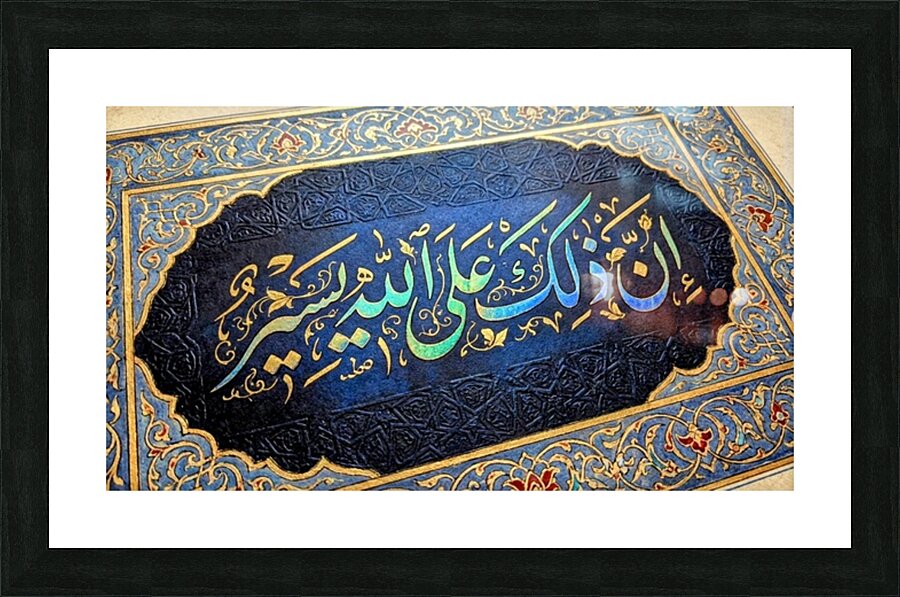 إِنَّ ذَلِكَ عَلَى اللَّهِ يَسِيرٌ